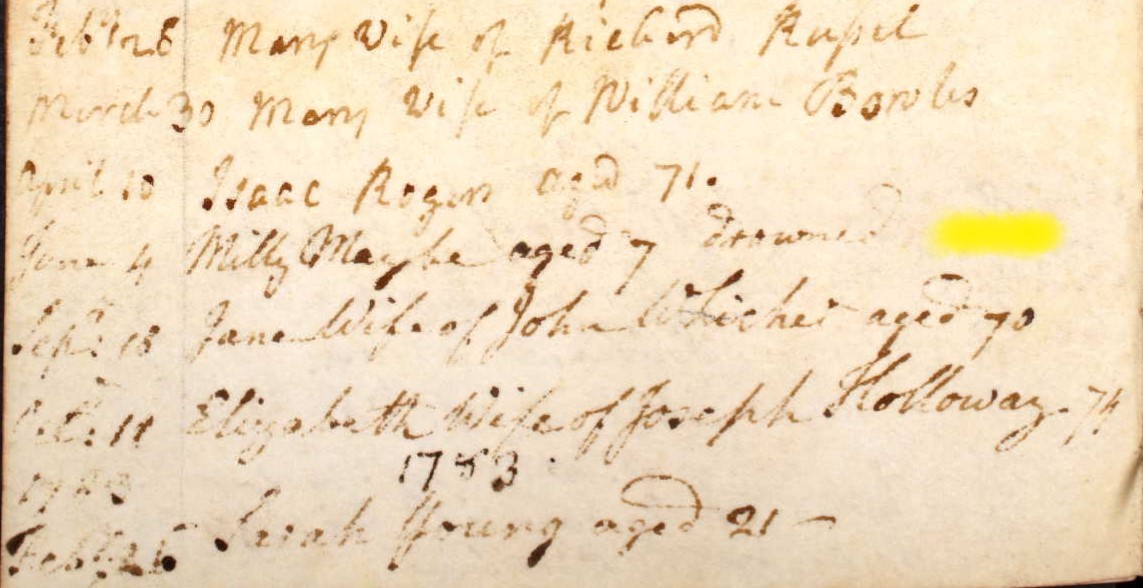 Feb 28 Mary Wife of Richard Russel
March 30 Mary Wife of William Bowles
April 10 Isaac Rogers aged 71.
June 4 Milly Maybe aged 7 drowned
Sepr: 18 Jane Wife of John Whicher aged 70
Octr: 11 Elizabeth Wife of Joseph Holloway. 74
1783
1783
Feby: 25 Sarah Young aged 21 –